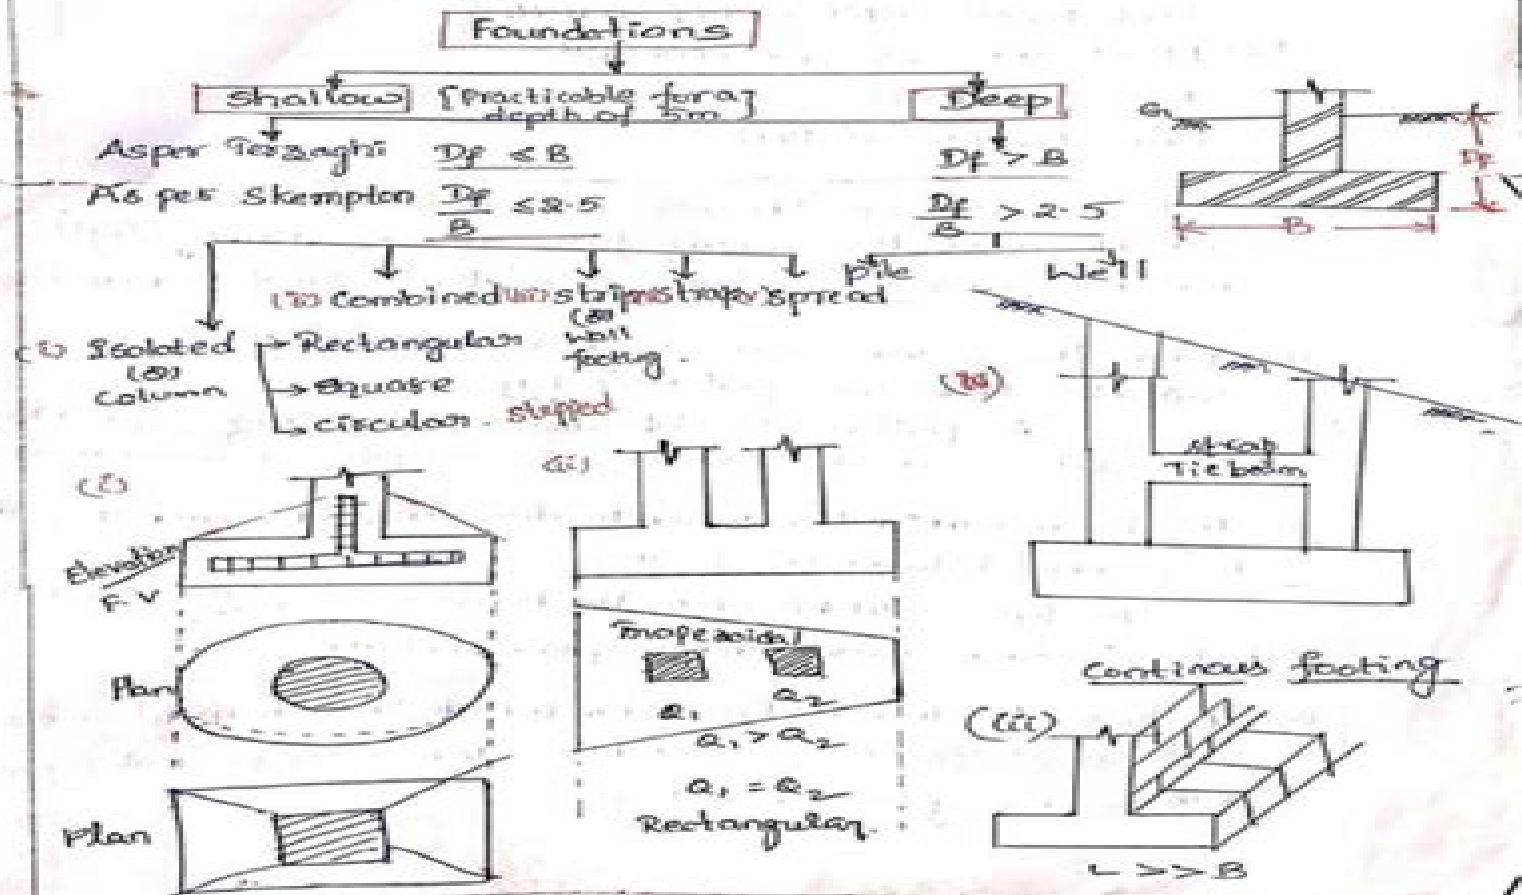 Foundations
Shallow [Practicable for a depth of 5m] Deep
As per Terzaghi Df ≤ B Df > B
As per Skempton Df/B ≤ 2.5 Df/B > 2.5
G.
Df
B
Pile Well
(ii) Combined (iii) strip (iv) strap (v) spread
(or)
wall
footing.
(i) Isolated
(or)
Column
Rectangular
Square
circular. stepped
(i)
Elevation
F.V
Plan
Plan
(ii)
Trapezoidal
Q1
Q2
Q1 > Q2
Q1 = Q2
Rectangular.
(iv)
strap
Tie beam
Continous footing
(iii)
L >> B